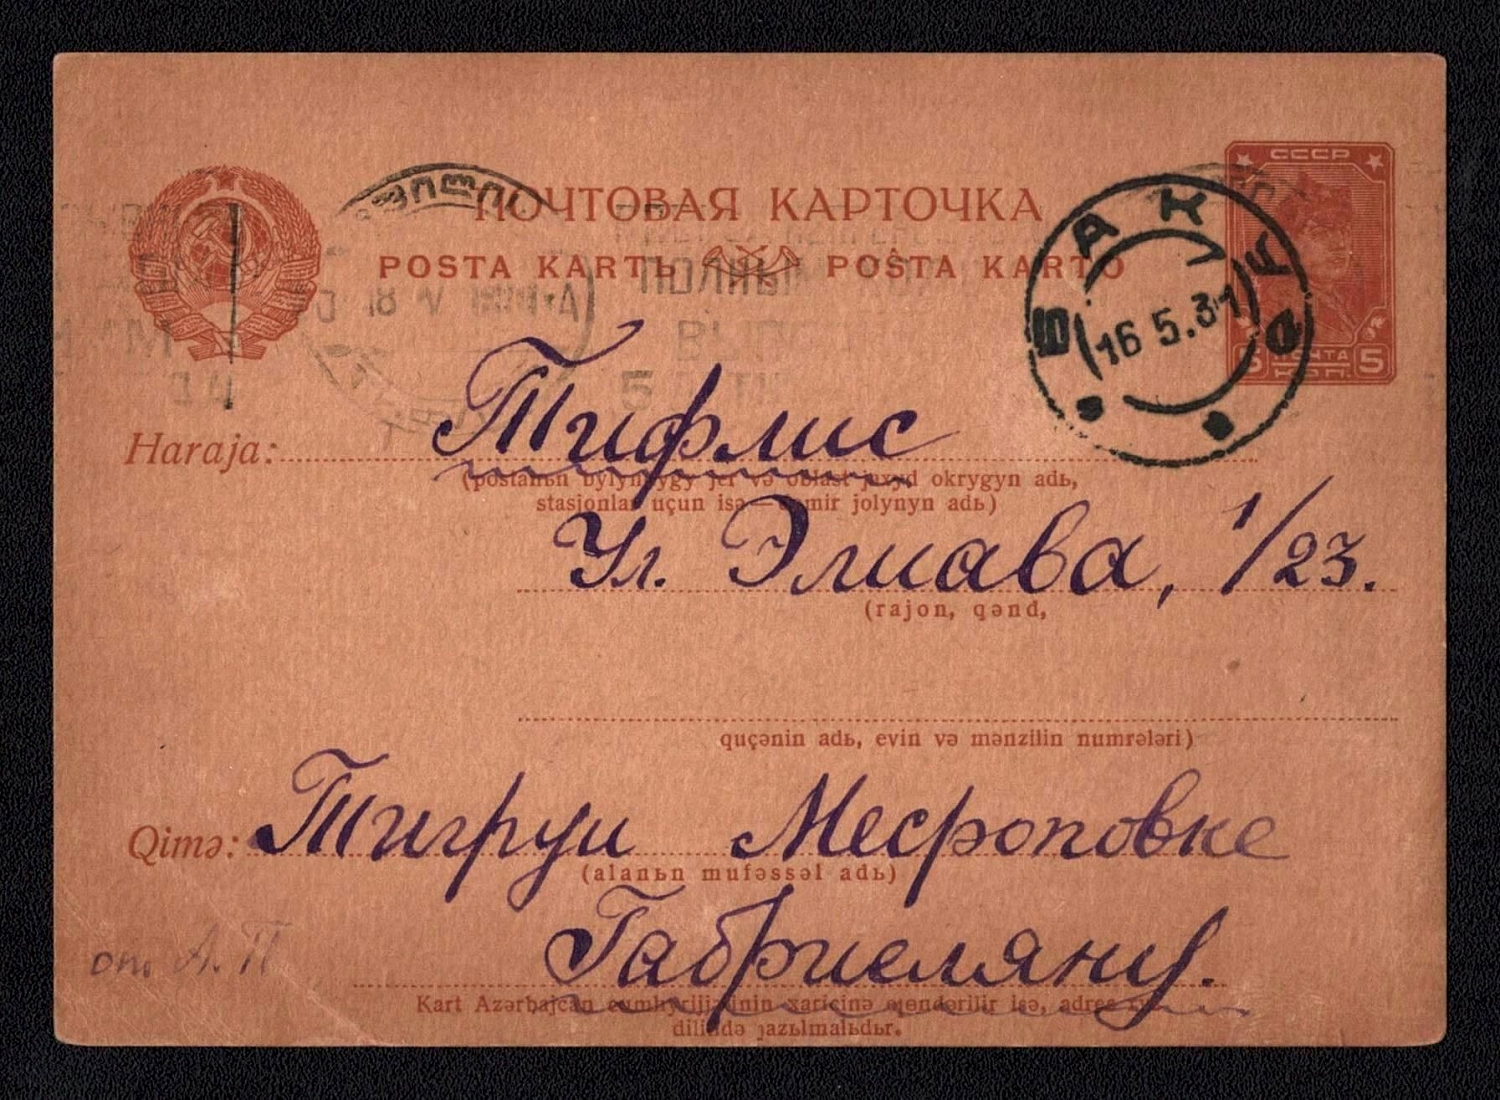 СССР
ПОЧТОВАЯ КАРТОЧКА
POSTA KARTЬ POSTA KARTO
БАКУ
16.5.31
5 ПОЧТА 5
КОП.
Haraja: Тифлис
(postanьn bylyndygy jer və oblast jaxyd okrygyn adь,
stasjonlar uçun isə—dəmir jolynyn adь)
Ул. Элиава, 1/23.
(rajon, qənd,
quçənin adь, evin və mənzilin numrələri)
Qimə: Тигруи Месроповне
(alanьn mufəssəl adь)
Габриеляну.
от А. П
Kart Azərbajcan cumhyrijjətinin xaricinə gɵndərilir isə, adres rys
dilində jazьlmalьdьr.